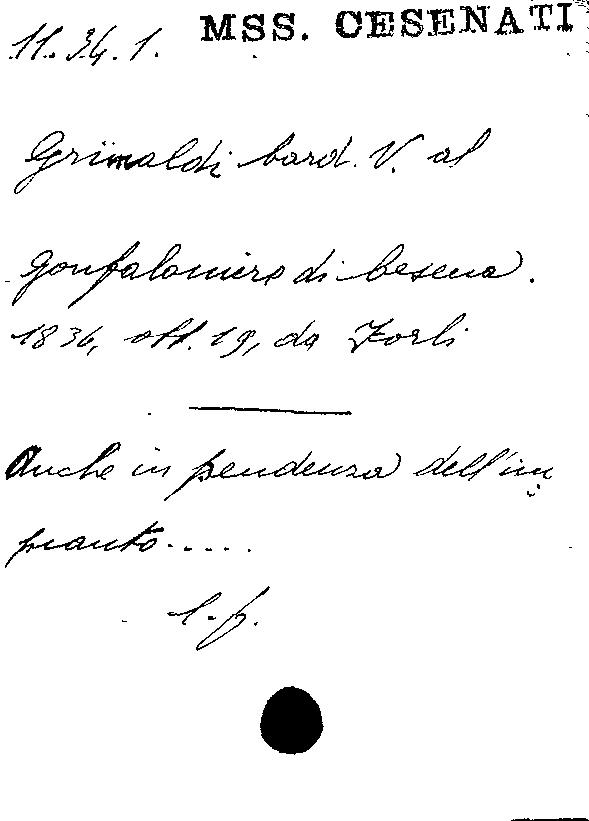 11.34.1. MSS. CESENATI
Grimaldi card. V. al
Gonfaloniere di Cesena.
1836, ott. 19, da Forlì
Anche in pendenza dell'im
pianto.....
l. f.